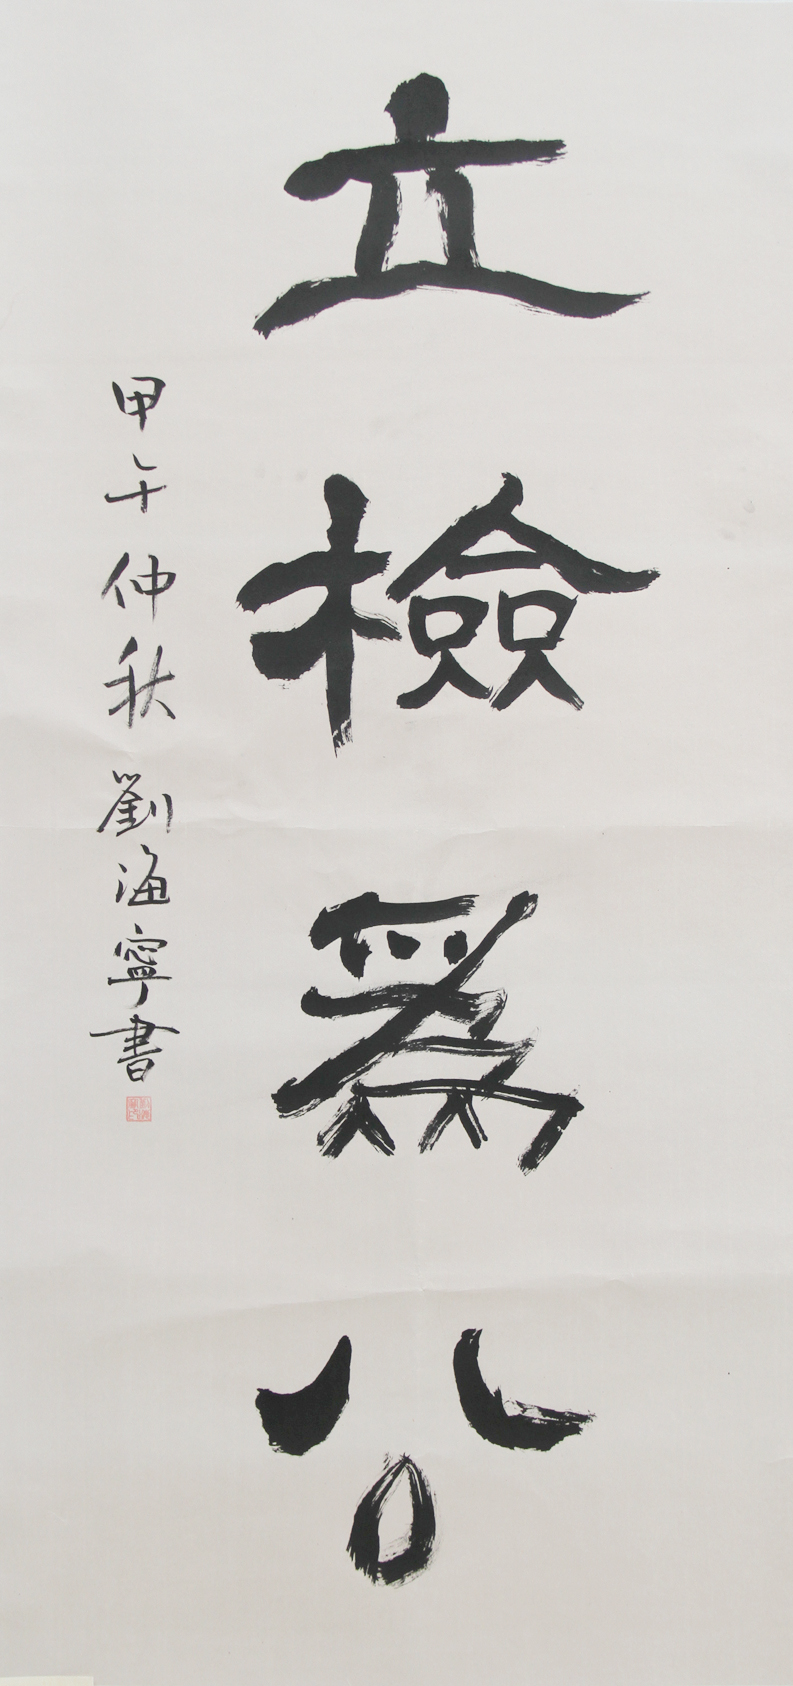 立檢為公
甲午仲秋 劉海寧書